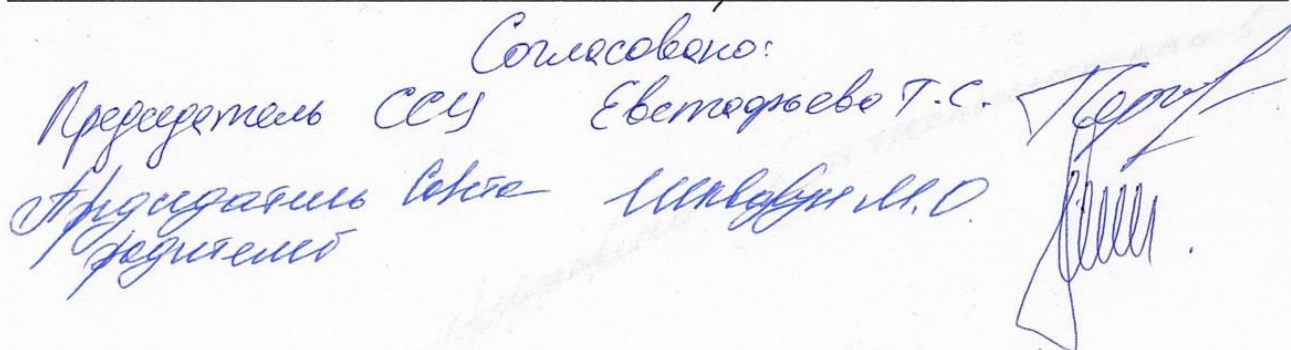 Согласовано:
Председатель ССУ Евстафьева Т.С.
Председатель Совета М.О.
родителей